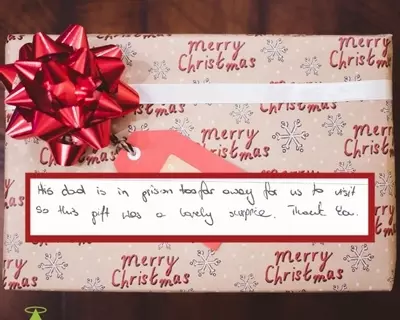 Merry
Christmas
Merry
Christmas
Merry
Christmas
Merry
Christmas
Merry
Christmas
His dad is in prison too far away for us to visit
So this gift was a lovely surprise. Thank You.
Merry
Christmas
Merry
Christmas